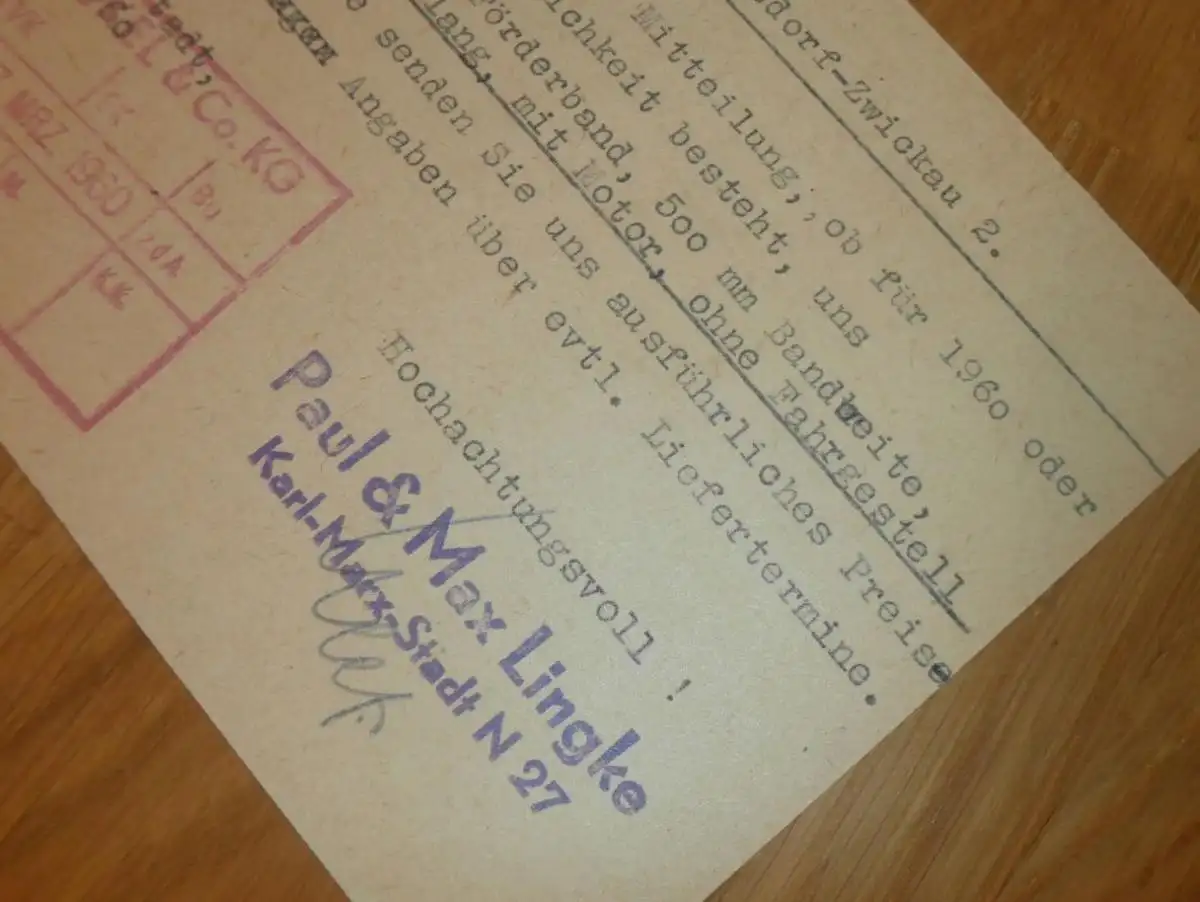 sdorf-Zwickau 2.
Mitteilung, ob für 1960 oder
ichkeit besteht, uns
Förderband, 500 mm Bandweite,
lang, mit Motor, ohne Fahrgestell
senden Sie uns ausführliches Preise
Angaben über evtl. Liefertermine.
Hochachtungsvoll !
Paul & Max Lingke
Karl-Marx-Stadt N 27
Co. KG
MRZ. 1960
Bu
zdA
KK